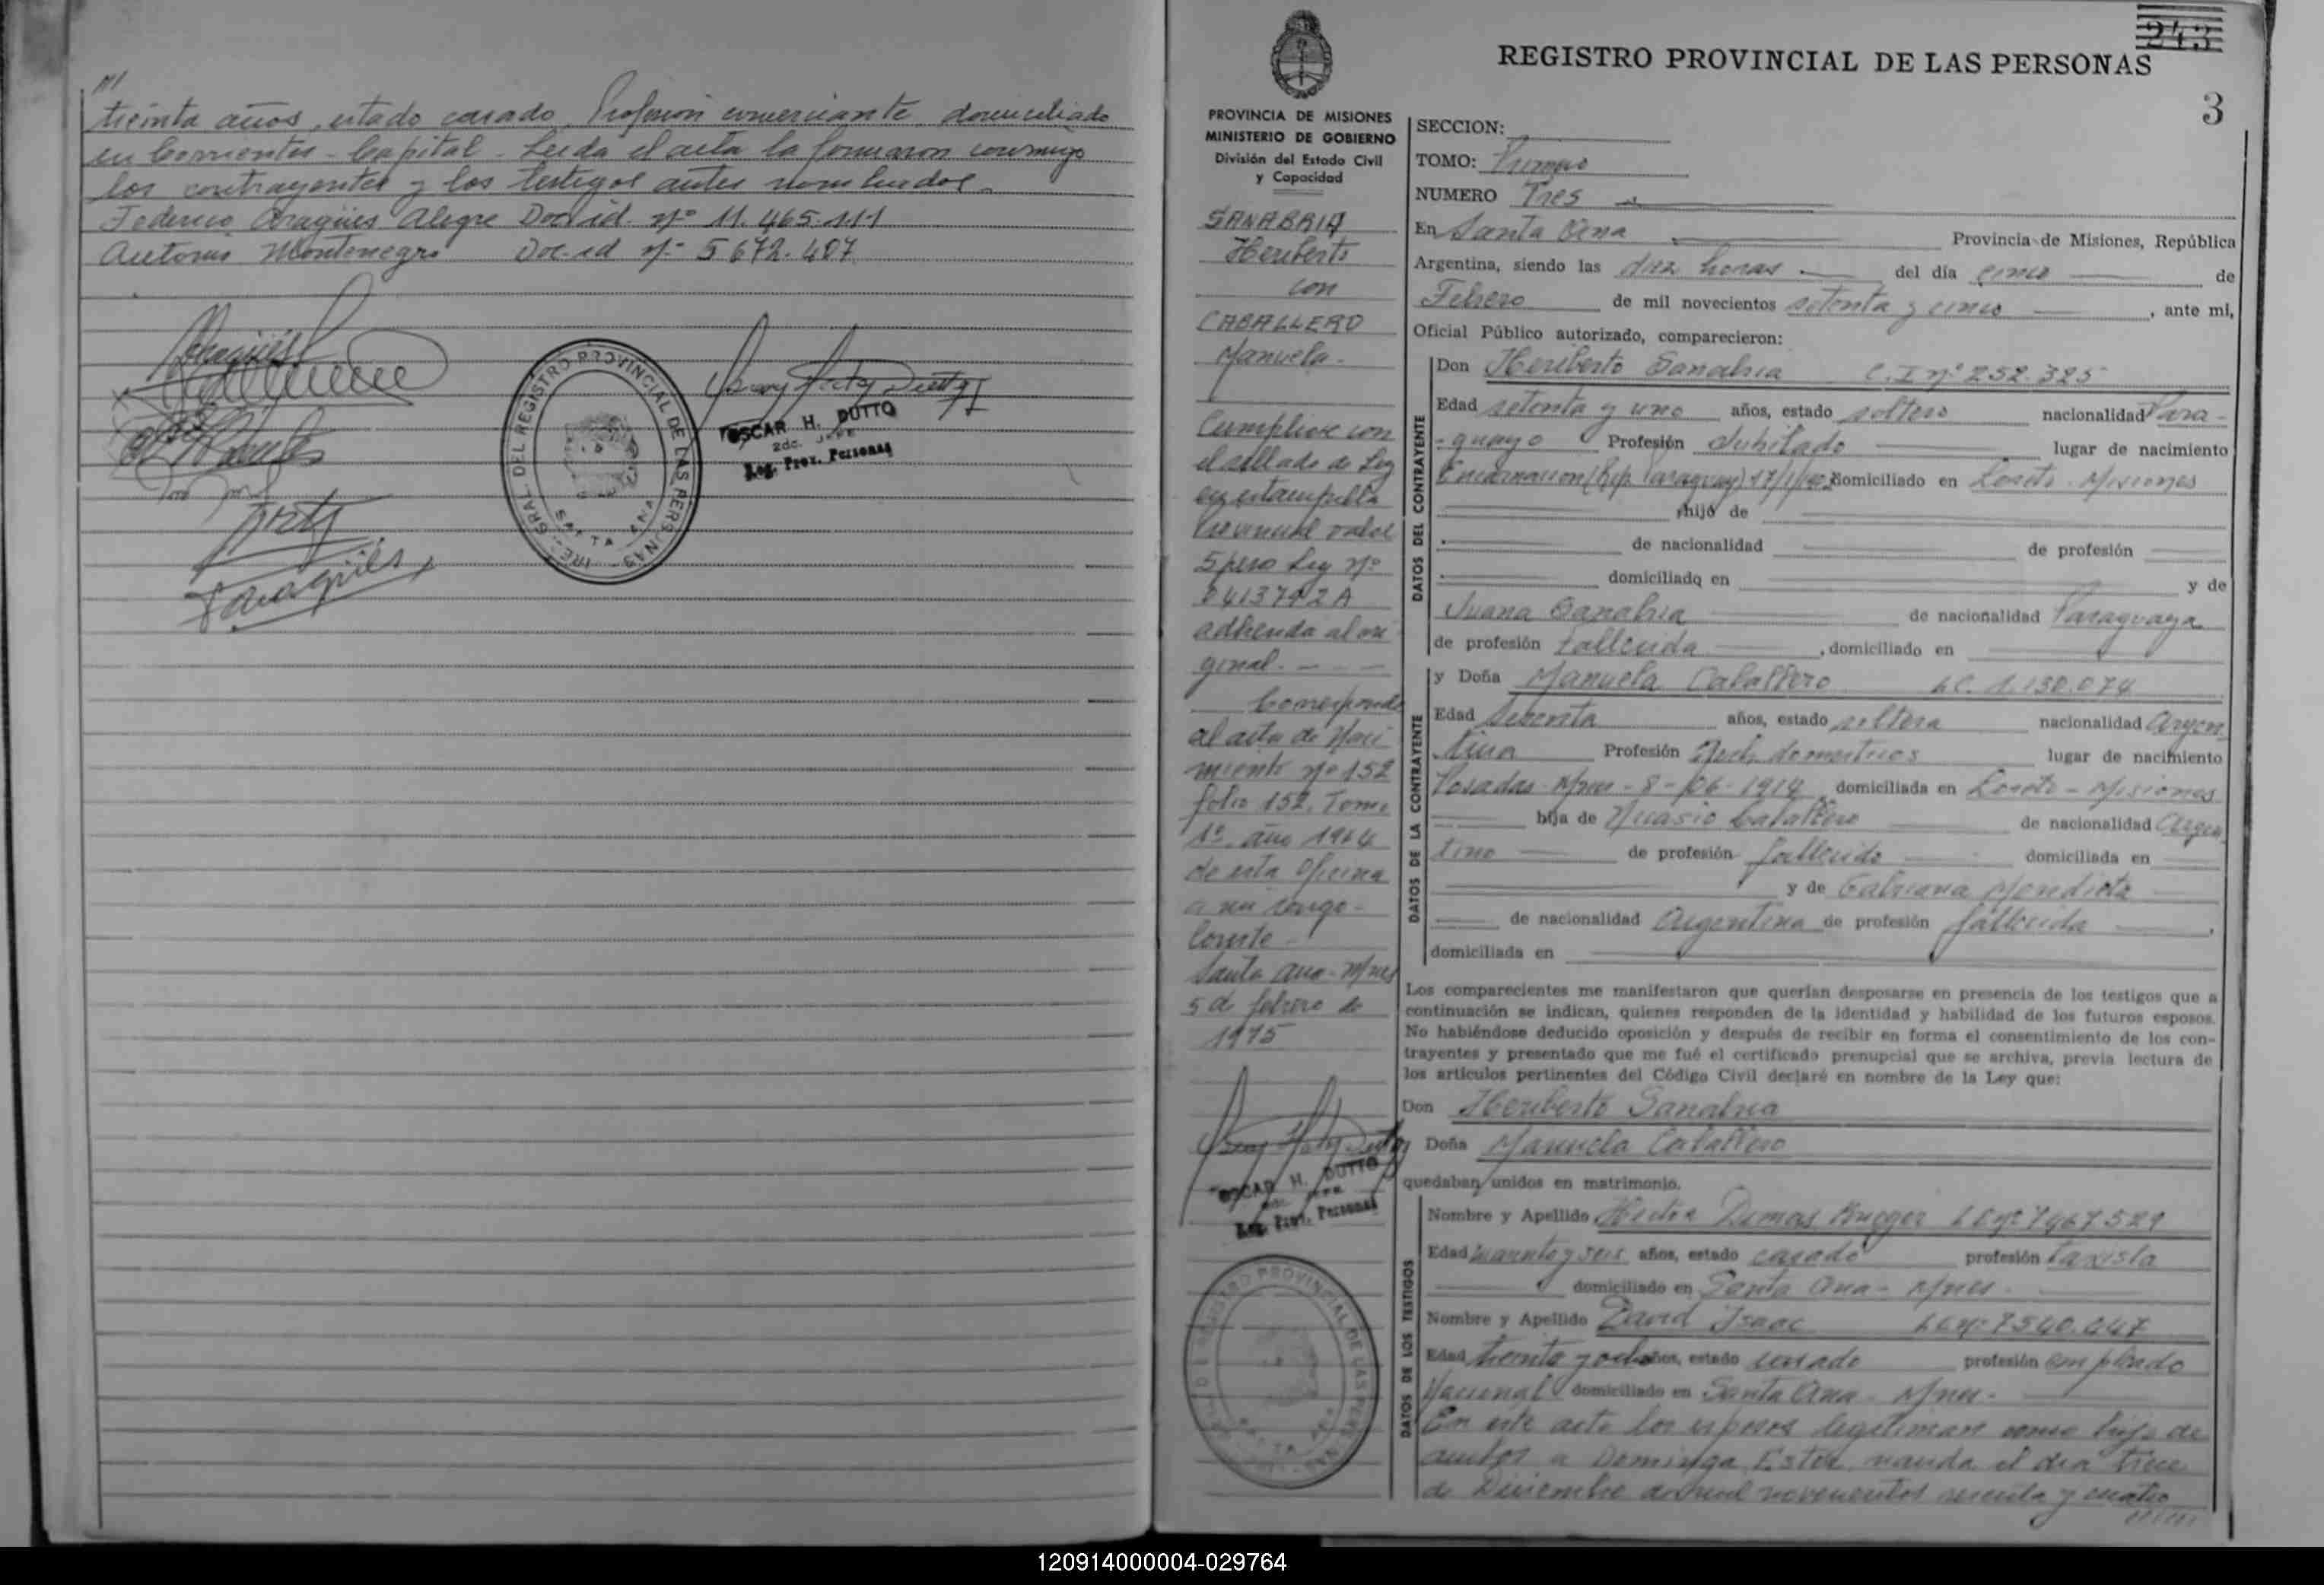 treinta años, estado casado, Profesión comerciante, domiciliado
en Corrientes - Capital - Leida el acta la firmaron conmigo
los contrayentes y los testigos antes nombrados.
Federico Aragües Alegre Doc. id. nº 11.465.111
Antonio Montenegro Doc. id nº 5672.407
GRAL. DEL REGISTRO PROVINCIAL DE LAS PERSONAS
SANTA ANA
OSCAR H. DUTTO
2do. JEFE
Reg. Prov. Personas
243
REGISTRO PROVINCIAL DE LAS PERSONAS
3
PROVINCIA DE MISIONES
MINISTERIO DE GOBIERNO
División del Estado Civil
y Capacidad
SANABRIA
Heriberto
con
CABALLERO
Manuela.
Cumpliose con
el sellado de Ley
en estampilla
Provincial valor
5 peso Ley nº
0413792A
adherida al ori
ginal.
Corresponde
al acta de Naci
miento nº 152
folio 152, Tomo
1º año 1964
de esta Oficina
a mi cargo-
Conste-
Santa Ana - Mnes
5 de febrero de
1975
OSCAR H. DUTTO
2do. JEFE
Reg. Prov. Personas
SECCION:
TOMO: Primero
NUMERO Tres
En Santa Ana Provincia de Misiones, República
Argentina, siendo las diez horas del día cinco de
Febrero de mil novecientos setenta y cinco, ante mi,
Oficial Público autorizado, comparecieron:
DATOS DEL CONTRAYENTE
Don Heriberto Sanabria C.I nº 252.325
Edad setenta y uno años, estado soltero nacionalidad Para-
-guayo Profesión Jubilado lugar de nacimiento
Encarnacion (Rep. Paraguay) 17/1/ domiciliado en Loreto - Misiones
hijo de
de nacionalidad de profesión
domiciliado en y de
Juana Sanabria de nacionalidad Paraguaya
de profesión Fallecida, domiciliado en
DATOS DE LA CONTRAYENTE
y Doña Manuela Caballero L.C. 1.130.074
Edad Sesenta años, estado soltera nacionalidad Argen
tina Profesión Queh. domesticos lugar de nacimiento
Posadas - Mnes - 8 - 06 - 1914 domiciliada en Loreto - Misiones
hija de Nicasio Caballero de nacionalidad Argen
tino de profesión fallecido domiciliada en
y de Gabriana Mendieta
de nacionalidad Argentina de profesión fallecida,
domiciliada en
Los comparecientes me manifestaron que querían desposarse en presencia de los testigos que a
continuación se indican, quienes responden de la identidad y habilidad de los futuros esposos.
No habiéndose deducido oposición y después de recibir en forma el consentimiento de los con-
trayentes y presentado que me fué el certificado prenupcial que se archiva, previa lectura de
los artículos pertinentes del Código Civil declaré en nombre de la Ley que:
Don Heriberto Sanabria
Doña Manuela Caballero
quedaban unidos en matrimonio.
DATOS DE LOS TESTIGOS
Nombre y Apellido Hector Dimas L.E nº 7467529
Edad cuarenta y seis años, estado casado profesión taxista
domiciliado en Santa Ana - Mnes.
Nombre y Apellido David Isaac L.E nº 7540.447
Edad treinta y ocho años, estado casado profesión empleado
Nacional domiciliado en Santa Ana - Mnes.
En este acto los esposos legitiman como hija de
ambos a Dominga Ester nacida el dia trece
de Diciembre de mil novecientos sesenta y cuatro
120914000004-029764